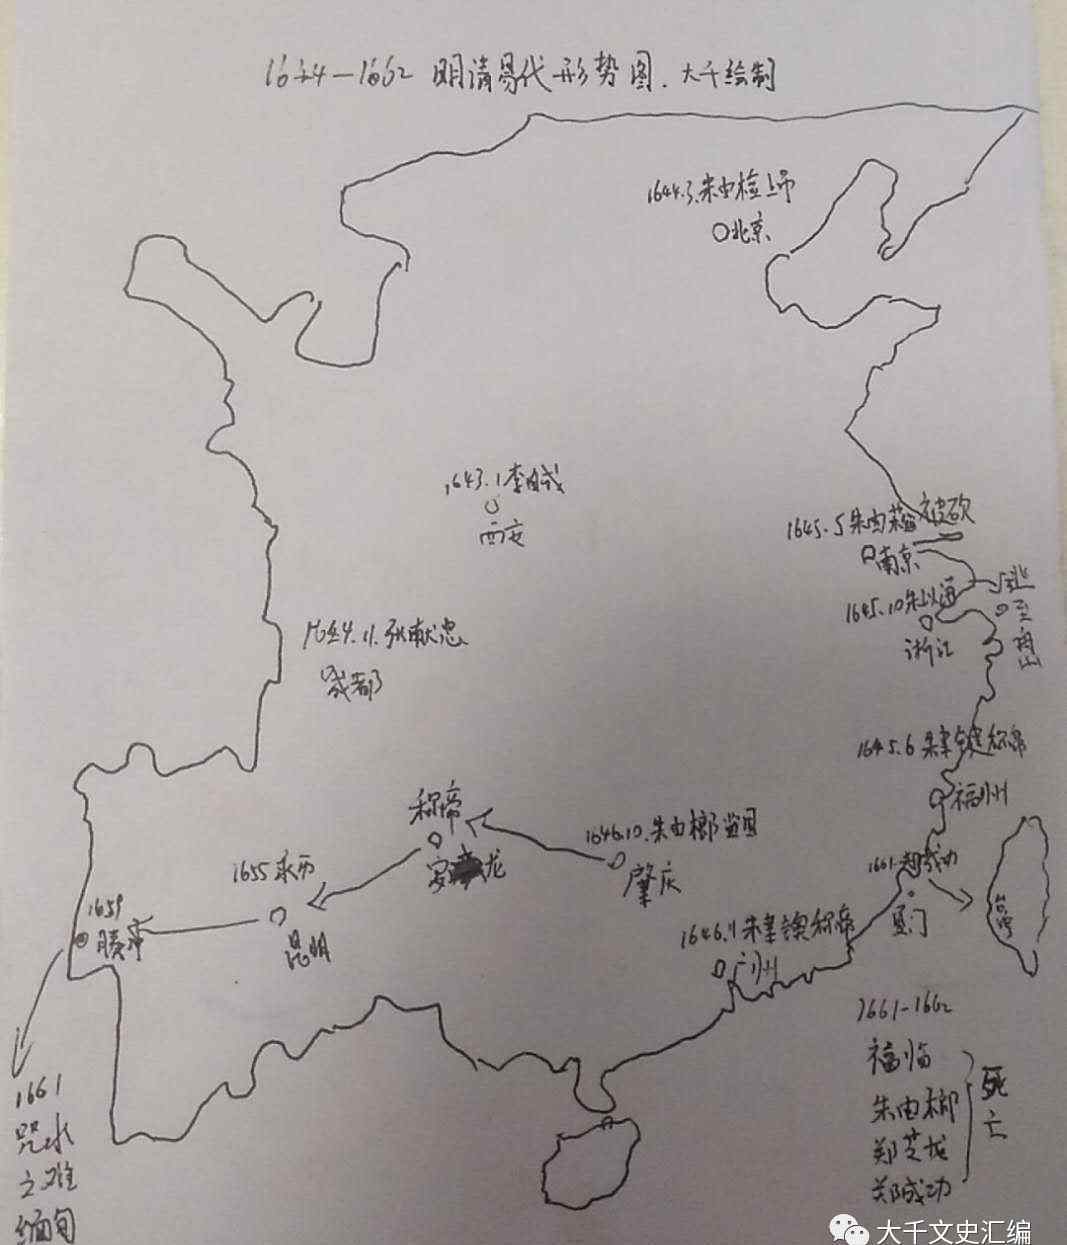 1644—1662 明清易代形势图. 大千绘制
1644.3.朱由检上吊
北京
1643.1李自成
西安
1645.5朱由崧被砍
南京
1645.10朱以海
逃至舟山
浙江
1644.11.张献忠
成都
1645.6朱聿键称帝
福州
称帝
安龙
1646.10.朱由榔监国
肇庆
1661郑成功
厦门
台湾
1655永历
昆明
1659
腾冲
1646.11朱聿𨮁称帝
广州
1661-1662
福临
朱由榔
郑芝龙
郑成功
死亡
1661
咒水
之难
缅甸
大千文史汇编